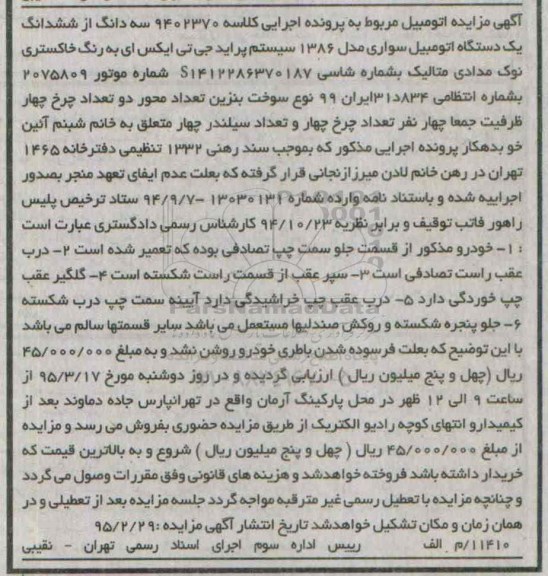 آگهی مزایده اتومبیل مربوط به پرونده اجرایی کلاسه ۹۴۰۲۳۷۰ سه دانگ از ششدانگ
یک دستگاه اتومبیل سواری مدل ۱۳۸۶ سیستم پراید جی تی ایکس ای به رنگ خاکستری
نوک مدادی متالیک بشماره شاسی S۱۴۱۲۲۸۶۳۷۰۱۸۷ شماره موتور ۲۰۷۵۸۰۹
بشماره انتظامی ۸۳۴د۳۱ایران ۹۹ نوع سوخت بنزین تعداد محور دو تعداد چرخ چهار
ظرفیت جمعا چهار نفر تعداد چرخ چهار و تعداد سیلندر چهار متعلق به خانم شبنم آئین
خو بدهکار پرونده اجرایی مذکور که بموجب سند رهنی ۱۳۳۲ تنظیمی دفترخانه ۱۴۶۵
تهران در رهن خانم لادن میرزازنجانی قرار گرفته که بعلت عدم ایفای تعهد منجر بصدور
اجراییه شده و باستناد نامه وارده شماره ۱۳۰۳۰۱۳۱ -۹۴/۹/۷ ستاد ترخیص پلیس
راهور فاتب توقیف و برابر نظریه ۹۴/۱۰/۲۳ کارشناس رسمی دادگستری عبارت است
: ۱- خودرو مذکور از قسمت جلو سمت چپ تصادفی بوده که تعمیر شده است ۲- درب
عقب راست تصادفی است ۳- سپر عقب از قسمت راست شکسته است ۴- گلگیر عقب
چپ خوردگی دارد ۵- درب عقب چپ خراشیدگی دارد آیینه سمت چپ درب شکسته
۶- جلو پنجره شکسته و روکش صندلیها مستعمل می باشد سایر قسمتها سالم می باشد
با این توضیح که بعلت فرسوده شدن باطری خودرو روشن نشد و به مبلغ ۴۵/۰۰۰/۰۰۰
ریال (چهل و پنج میلیون ریال ) ارزیابی گردیده و در روز دوشنبه مورخ ۹۵/۳/۱۷ از
ساعت ۹ الی ۱۲ ظهر در محل پارکینگ آرمان واقع در تهرانپارس جاده دماوند بعد از
کیمیدارو انتهای کوچه رادیو الکتریک از طریق مزایده حضوری بفروش می رسد و مزایده
از مبلغ ۴۵/۰۰۰/۰۰۰ ریال ( چهل و پنج میلیون ریال ) شروع و به بالاترین قیمت که
خریدار داشته باشد فروخته خواهدشد و هزینه های قانونی وفق مقررات وصول می گردد
و چنانچه مزایده با تعطیل رسمی غیر مترقبه مواجه گردد جلسه مزایده بعد از تعطیلی و در
همان زمان و مکان تشکیل خواهدشد تاریخ انتشار آگهی مزایده :۹۵/۲/۲۹
۱۱۴۱۰/م الف رییس اداره سوم اجرای اسناد رسمی تهران - نقیبی
ParsNamadData